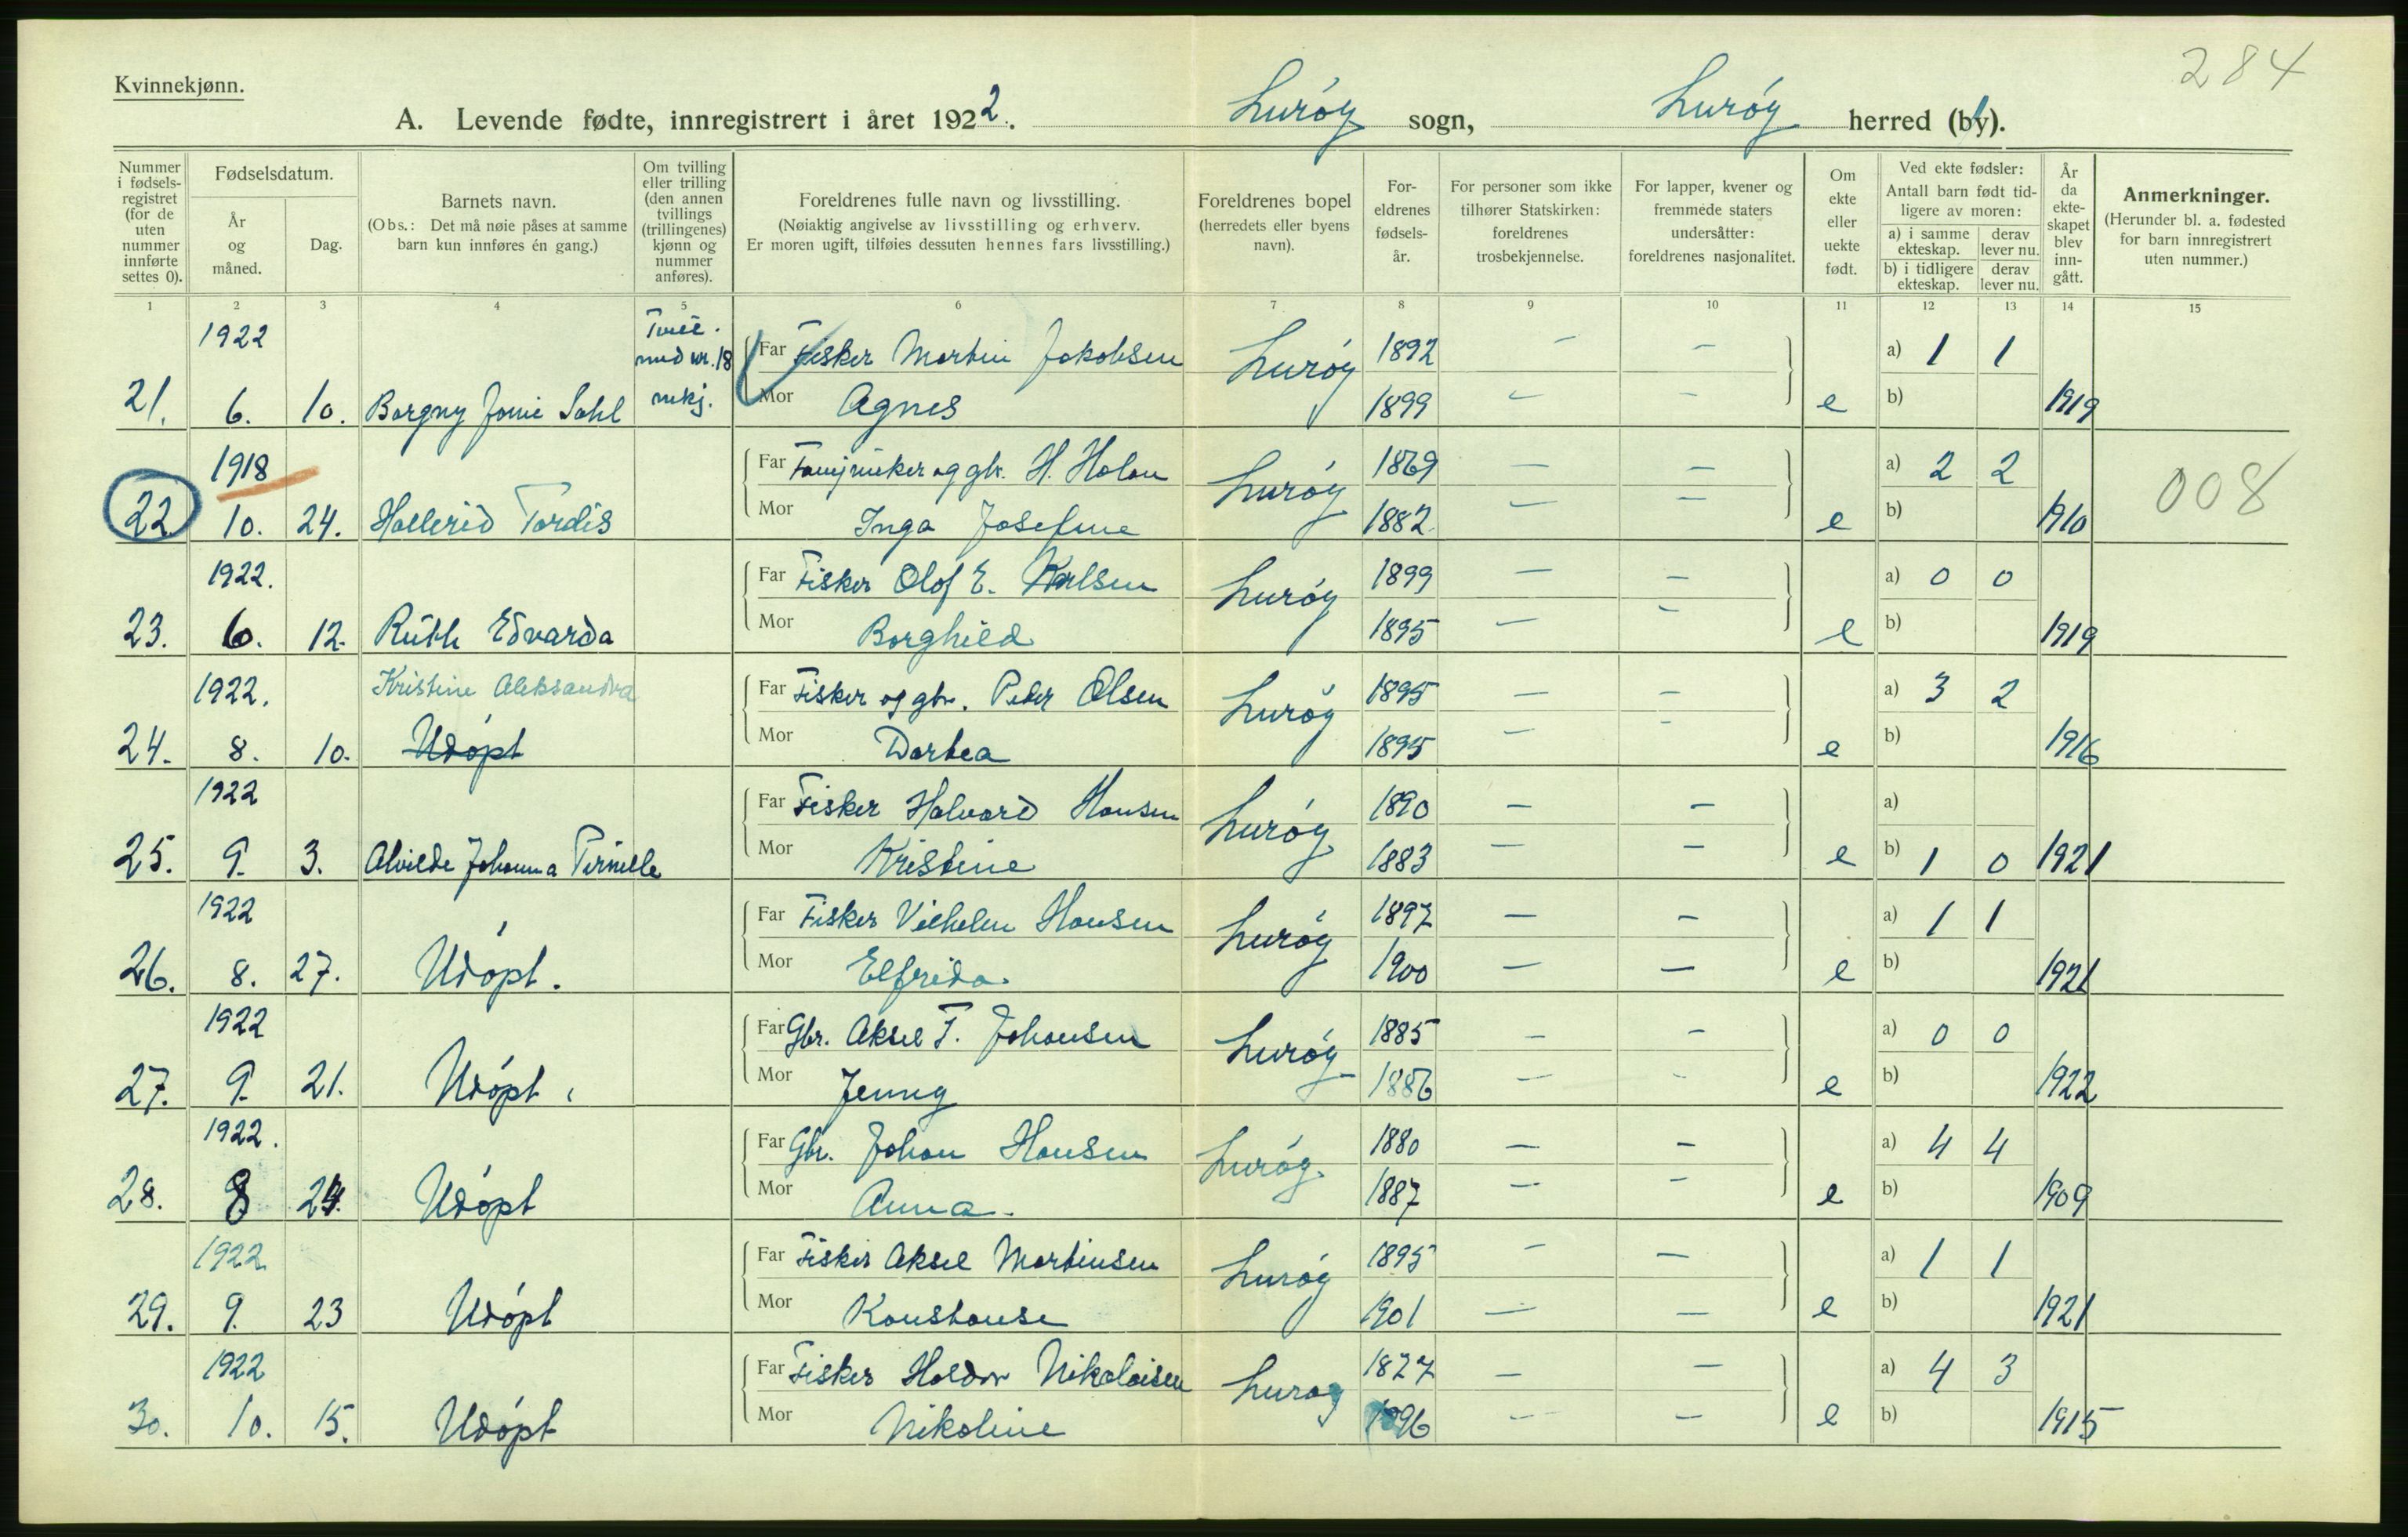 284
Kvinnekjønn.
A. Levende fødte, innregistrert i året 1922. Lurøy sogn, Lurøy herred (by).
Nummer i fødsels-registret (for de uten nummer innførte settes 0).
Fødselsdatum.
År og måned.
Dag.
Barnets navn.
(Obs.: Det må nøie påses at samme barn kun innføres én gang.)
Om tvilling eller trilling (den annen tvillings (trillingenes) kjønn og nummer anføres).
Foreldrenes fulle navn og livsstilling.
(Nøiaktig angivelse av livsstilling og erhverv.
Er moren ugift, tilføies dessuten hennes fars livsstilling.)
Foreldrenes bopel
(herredets eller byens navn).
For-eldrenes fødsels-år.
For personer som ikke tilhører Statskirken: foreldrenes trosbekjennelse.
For lapper, kvener og fremmede staters undersåtter: foreldrenes nasjonalitet.
Om ekte eller uekte født.
Ved ekte fødsler:
Antall barn født tid-ligere av moren:
a) i samme ekteskap.
derav lever nu.
b) i tidligere ekteskap.
derav lever nu.
År da ekte-skapet blev inn-gått.
Anmerkninger.
(Herunder bl. a. fødested for barn innregistrert uten nummer.)
1 2 3 4 5 6 7 8 9 10 11 12 13 14 15
1922 Far Fisker Martin Jakobsen Lurøy 1892 — — a) 1 1
med nr. 18
21. 6. 10. Borgny mkj. Mor Agnes 1899 — — e b) 1919
1918 Far H. Holan Lurøy 1869 — — a) 2 2
22 10. 24. Tordis Mor Inga Josefine 1882 — — e b) 1910 008
1922. Far Fisker Olof E. Karlsen Lurøy 1899 — — a) 0 0
23. 6. 12. Ruth Edvarda Mor Borghild 1895 — — e b) 1919
1922. Kristine Aleksandra Far Fisker og gbr. Peder Olsen Lurøy 1895 — — a) 3 2
24. 8. 10. Udøpt Mor Dortea 1895 — — e b) 1916
1922 Far Fisker Halvard Hansen Lurøy 1890 — — a)
25. 9. 3. Alvilde Johanna Pernille Mor Kristine 1883 — — e b) 1 0 1921
1922 Far Fisker Vilhelm Hansen Lurøy 1897 — — a) 1 1
26. 8. 27. Udøpt. Mor Elfrida 1900 — — e b) 1921
1922 Far Gbr. Aksel F. Johansen Lurøy 1885 — — a) 0 0
27. 9. 21. Udøpt. Mor Jenny 1886 — — e b) 1922
1922. Far Gbr. Johan Hansen Lurøy 1880 — — a) 4 4
28. 8 24. Udøpt Mor Anna 1887 — — e b) 1909
1922 Far Fisker Aksel Martinsen Lurøy 1895 — — a) 1 1
29. 9. 23 Udøpt Mor Konstanse 1901 — — e b) 1921
1922 Far Fisker Haldor Nikolaisen Lurøy 1877 — — a) 4 3
30. 10. 15. Udøpt Mor Nikoline 1896 — — e b) 1915